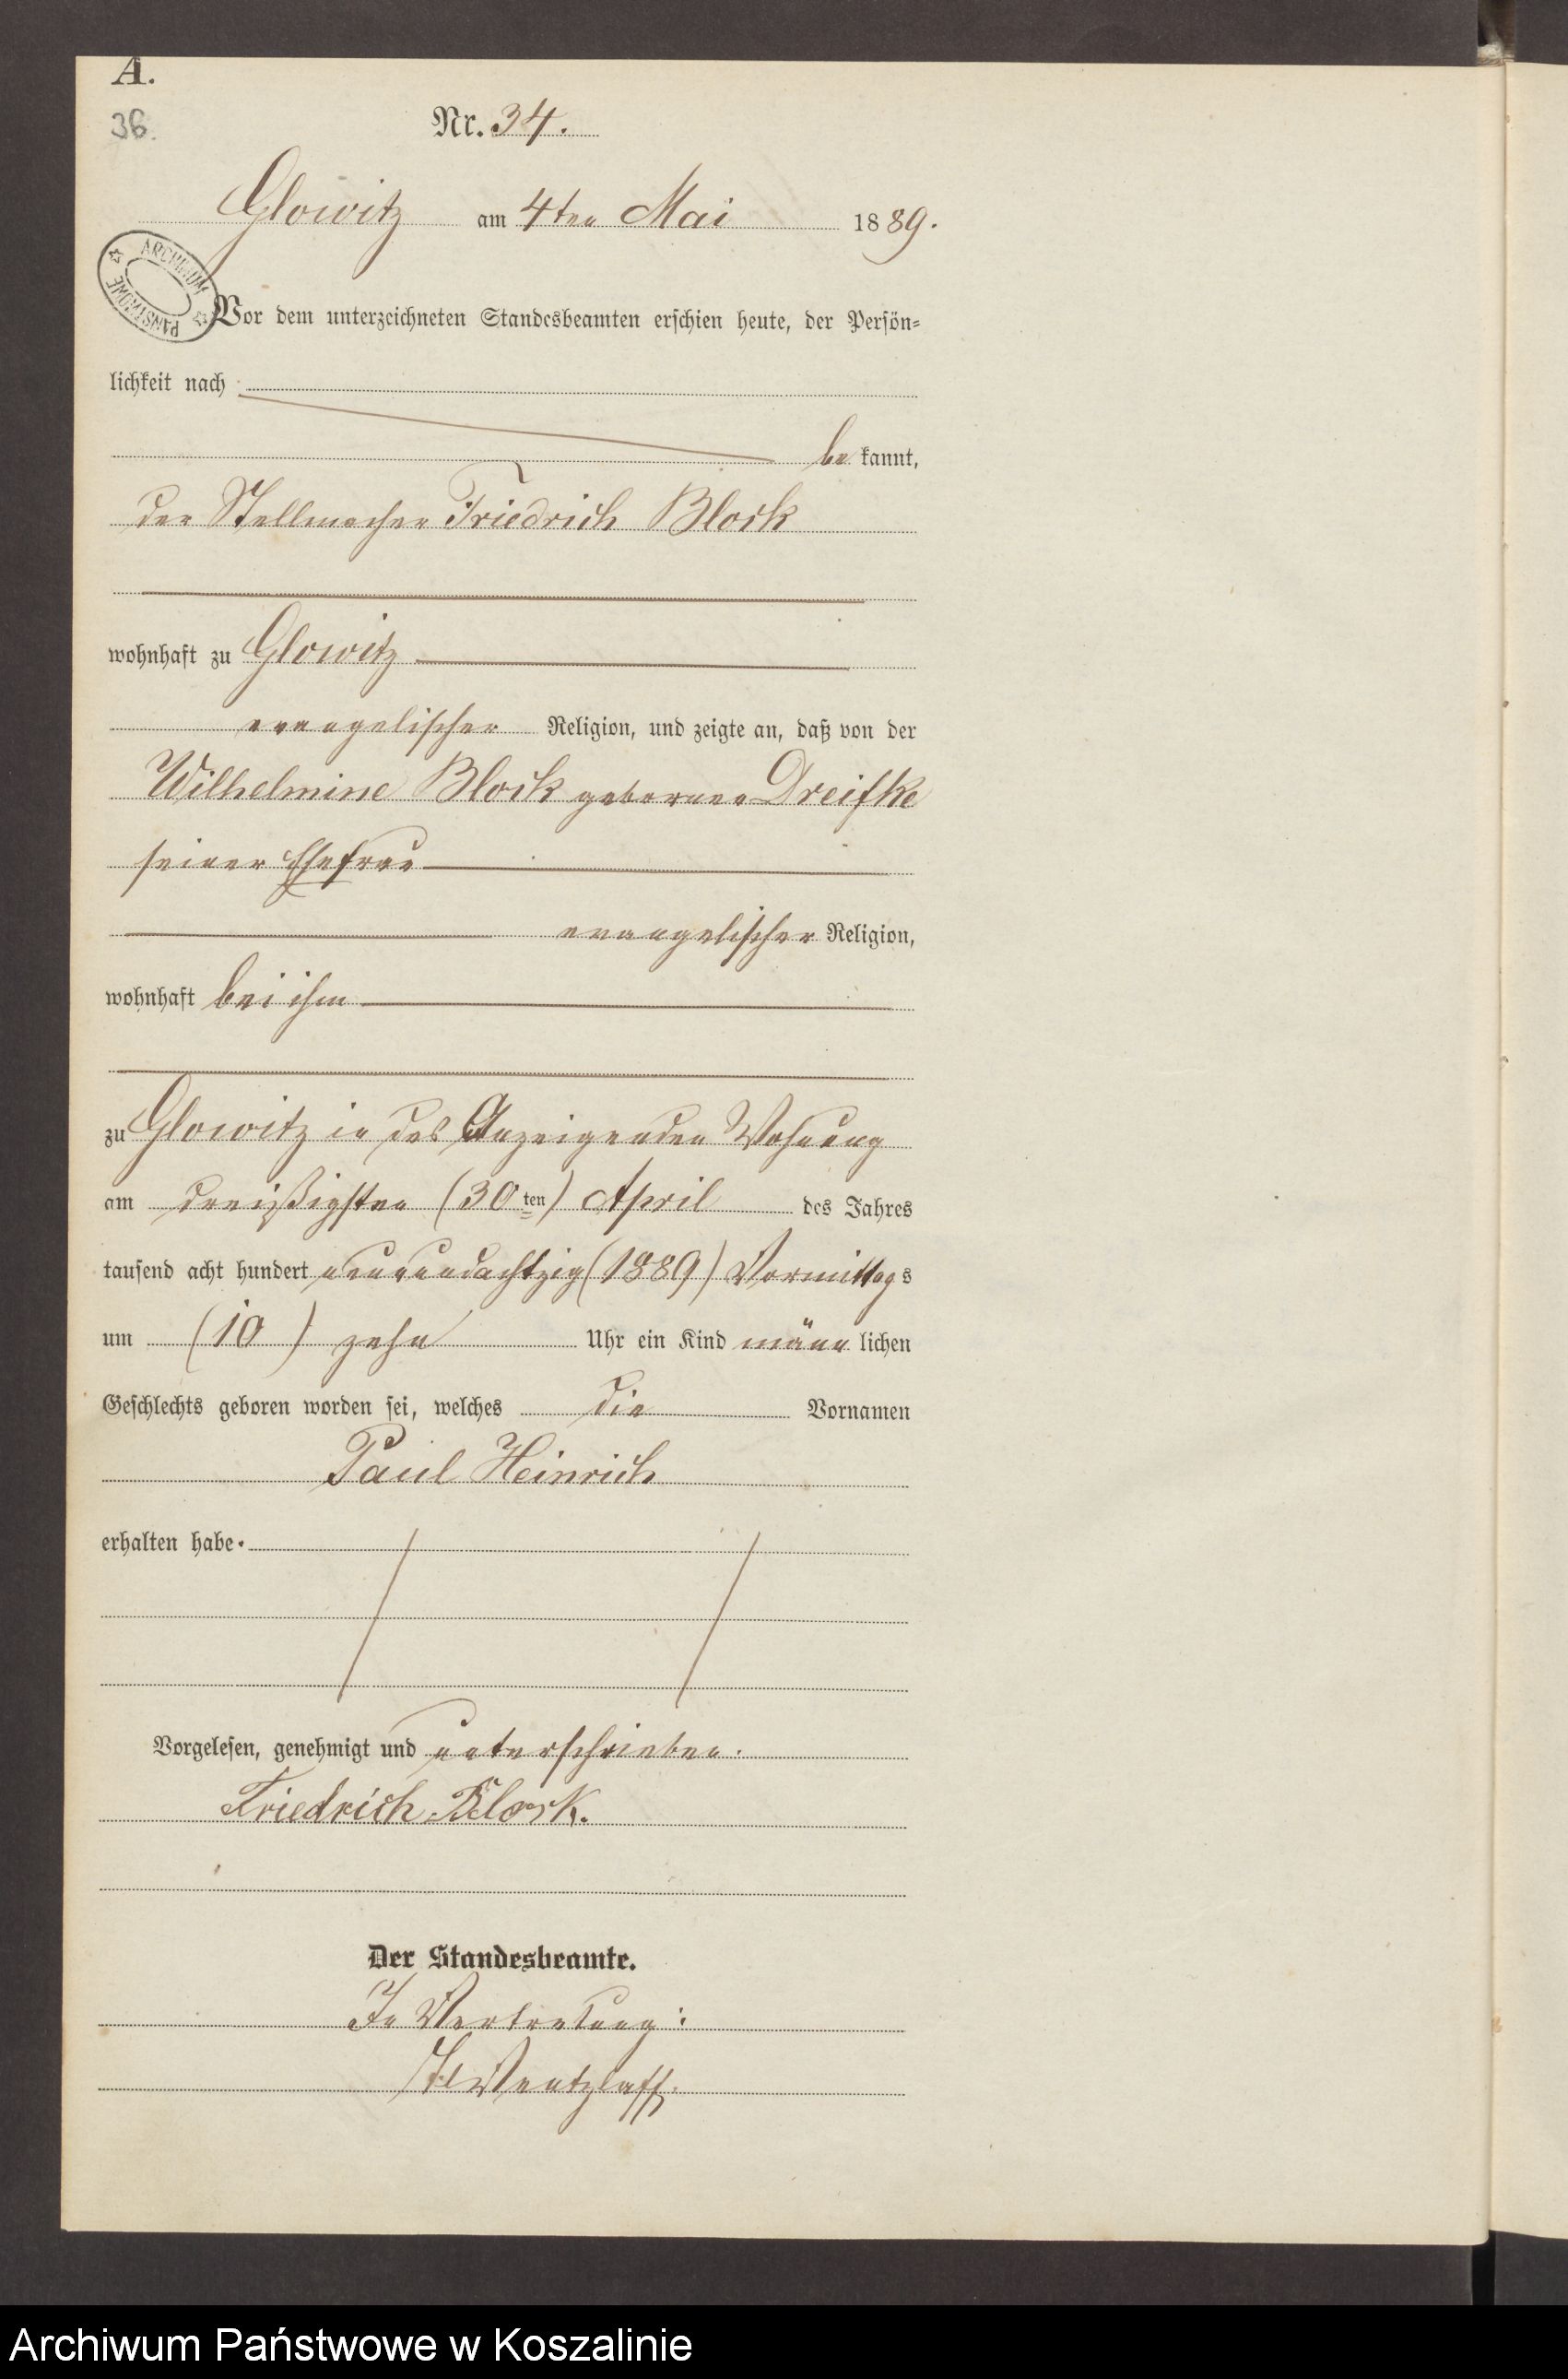 A.
36.
Nr. 34.
Glowitz am 4ten Mai 1889.
ARCHIWUM PAŃSTWOWE
Vor dem unterzeichneten Standesbeamten erschien heute, der Persön=
lichkeit nach
bekannt,
der Stellmacher Friedrich Block
wohnhaft zu Glowitz
evangelischer Religion, und zeigte an, daß von der
Wilhelmine Block geborenen Dreifke
seiner Ehefrau
evangelischer Religion,
wohnhaft bei ihm
zu Glowitz in des Anzeigenden Wohnung
am dreißigsten (30ten) April des Jahres
tausend acht hundert neunundachtzig (1889) Vormittags
um (10) zehn Uhr ein Kind männlichen
Geschlechts geboren worden sei, welches die Vornamen
Paul Heinrich
erhalten habe.
Vorgelesen, genehmigt und unterschrieben.
Friedrich Block.
Der Standesbeamte.
In Vertretung:
Wentzlaff.
Archiwum Państwowe w Koszalinie